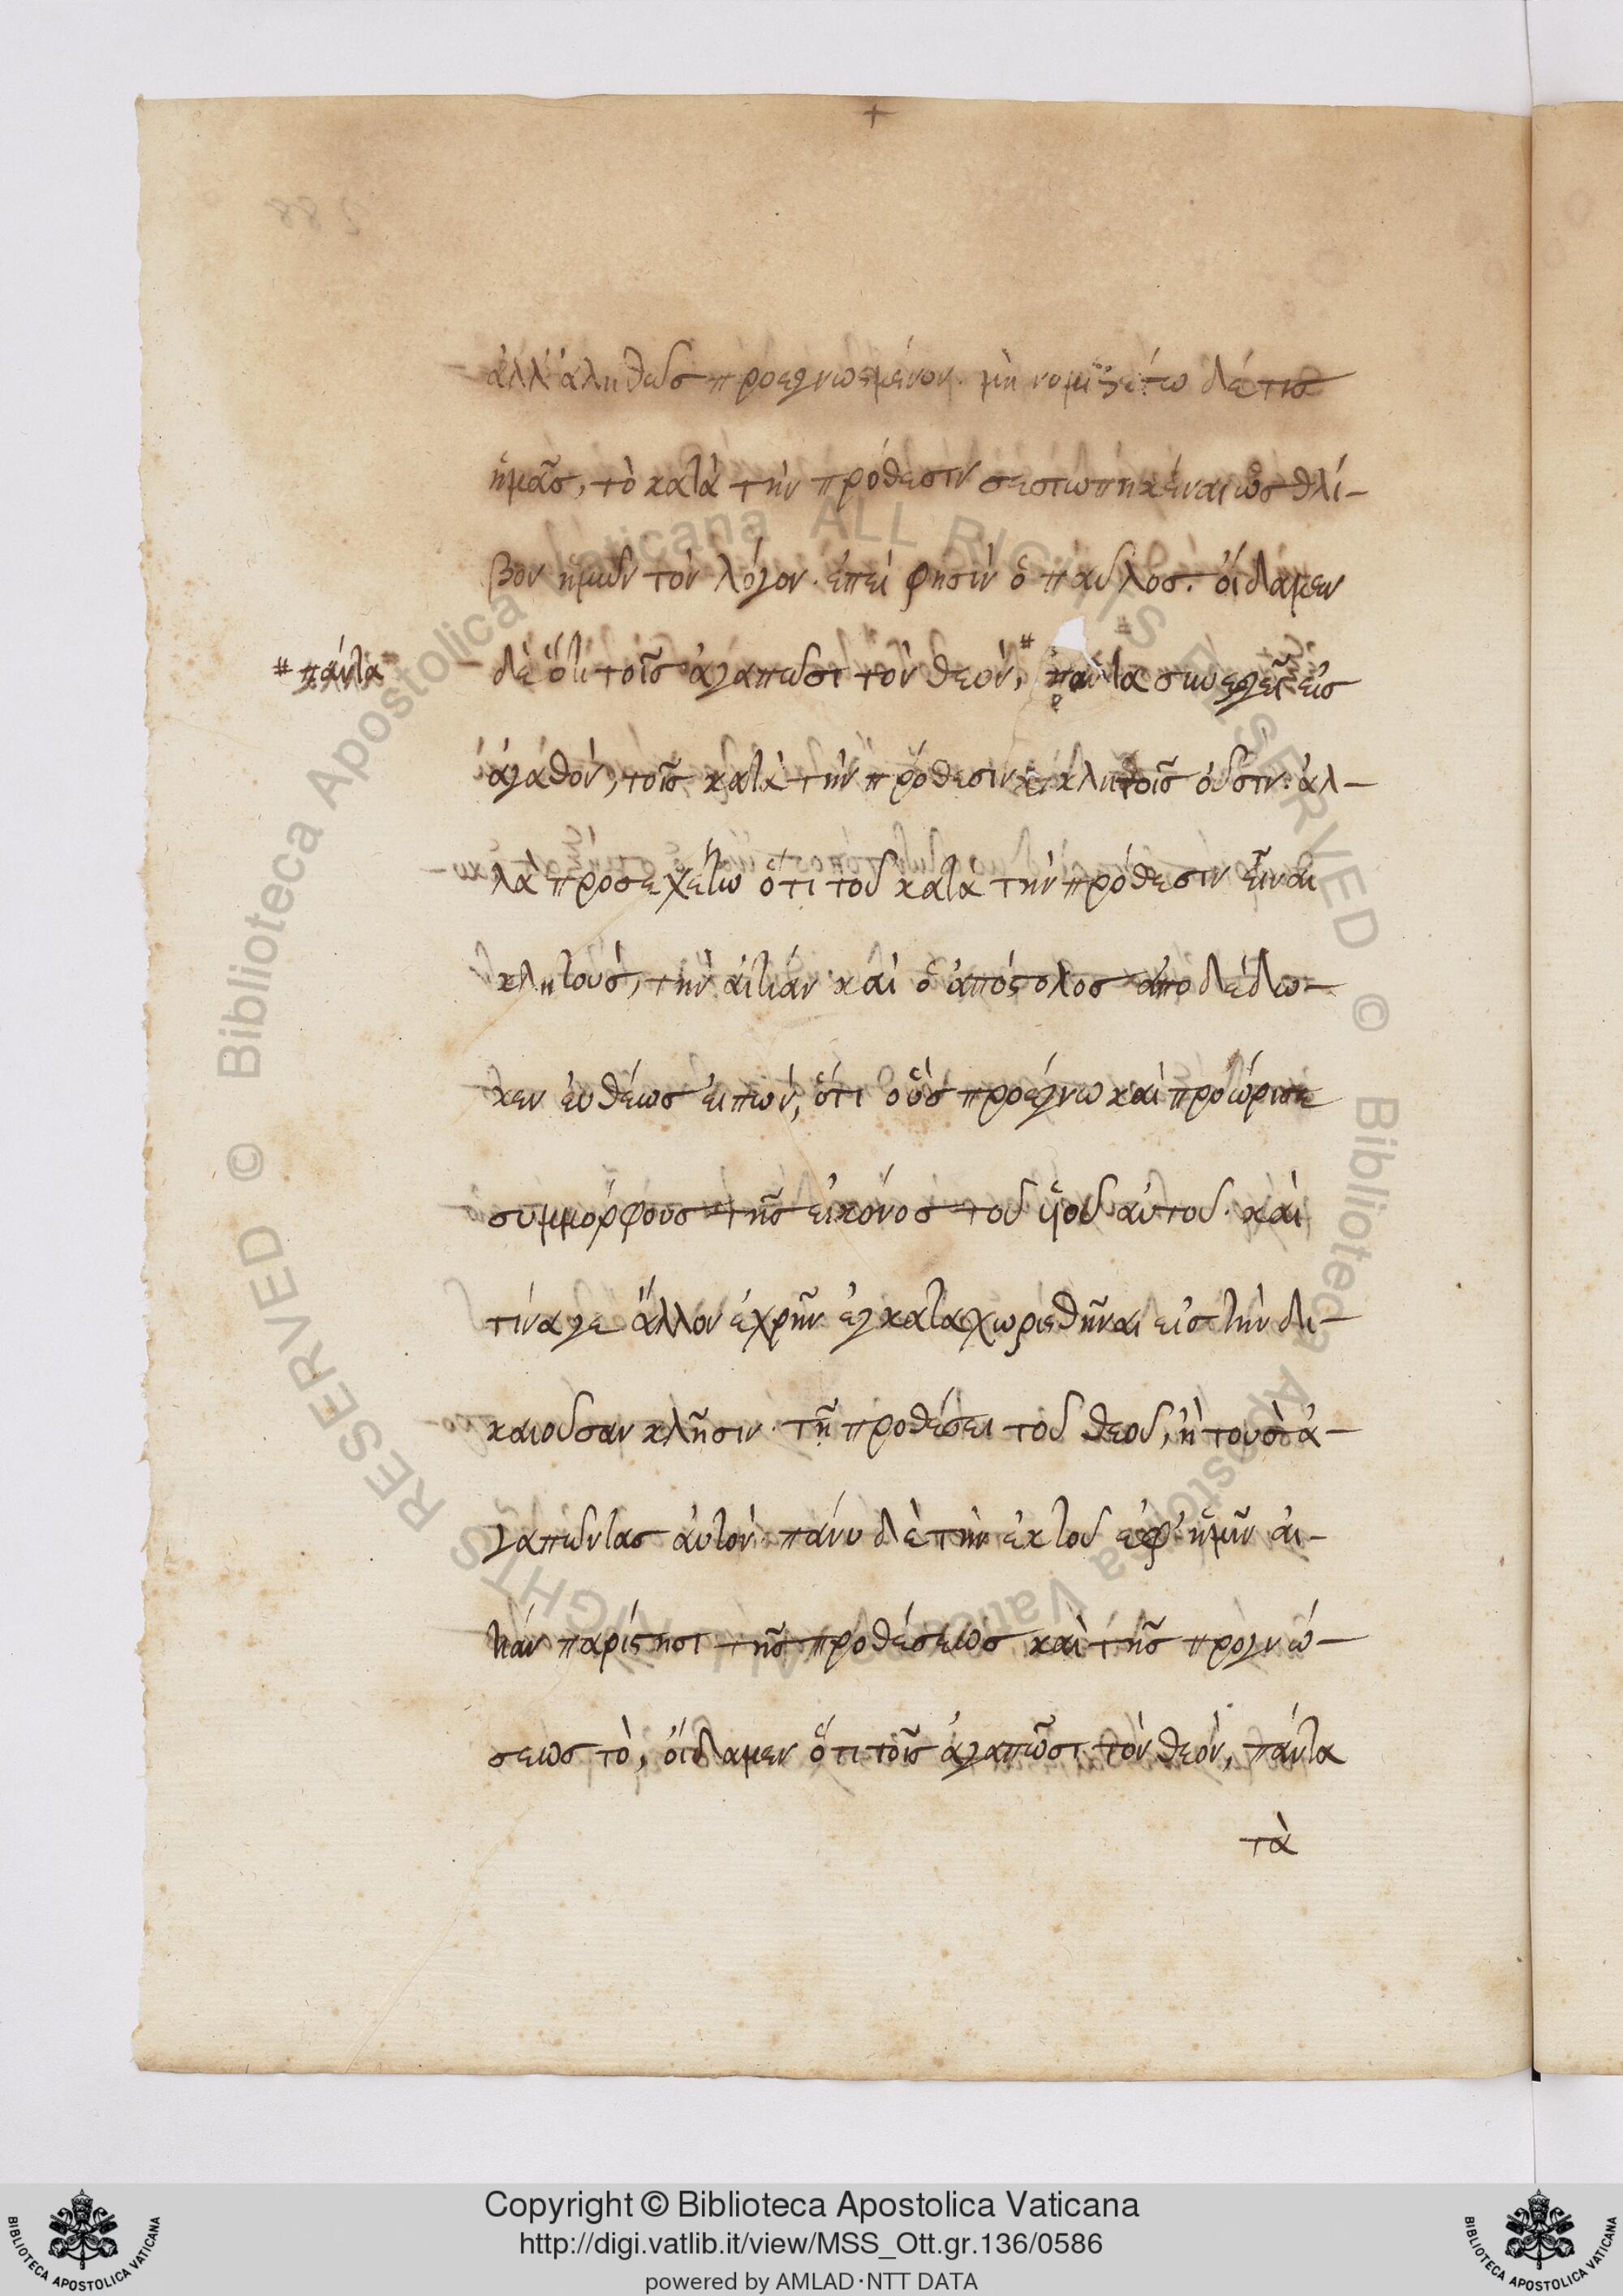 +
ἀλλ' ἀληθῶς προεγνωσμένον. μὴ νομιζέτω δέ τις
ἡμᾶς, τὸ κατὰ τὴν πρόθεσιν σεσιωπηκέναι ὡς θλί-
βον ἡμῶν τὸν λόγον. ἐπεί φησὶν ὁ παῦλος. οἴδαμεν
# πάντα
δὲ ὅτι τοῖς ἀγαπῶσι τὸν θεόν, # πάντα συνεργεῖ εἰς
ἀγαθόν, τοῖς κατὰ τὴν πρόθεσιν κλητοῖς οὖσιν. ἀλ-
λὰ προσεχέτω ὅτι τοῦ κατὰ τὴν πρόθεσιν εἶναι
κλητούς, τὴν αἰτίαν καὶ ὁ ἀπόστολος ἀποδέδω-
κεν εὐθέως εἰπών, ὅτι οὓς προέγνω καὶ προώρισε
συμμόρφους τῆς εἰκόνος τοῦ ὑἱοῦ αὐτοῦ. καὶ
τίνα γε ἄλλον ἐχρῆν ἐγκαταχωρισθῆναι εἰς τὴν δι-
καιοῦσαν κλῆσιν. τῇ προθέσει τοῦ θεοῦ, ἢ τοὺς ἀ-
γαπῶντας αὐτόν. πάνυ δὲ τὴν ἐκ τοῦ ἐφ' ἡμῖν αἰ-
τίαν παρίστησι τῆς προθέσεως καὶ τῆς προγνώ-
σεως τὸ, οἴδαμεν ὅτι τοῖς ἀγαπῶσι τὸν θεόν, πάντα
τὰ
Copyright © Biblioteca Apostolica Vaticana
http://digi.vatlib.it/view/MSS_Ott.gr.136/0586
powered by AMLAD·NTT DATA
BIBLIOTECA APOSTOLICA VATICANA
BIBLIOTECA APOSTOLICA VATICANA
© Biblioteca Apostolica Vaticana ALL RIGHTS RESERVED © Biblioteca Apostolica Vaticana ALL RIGHTS RESERVED